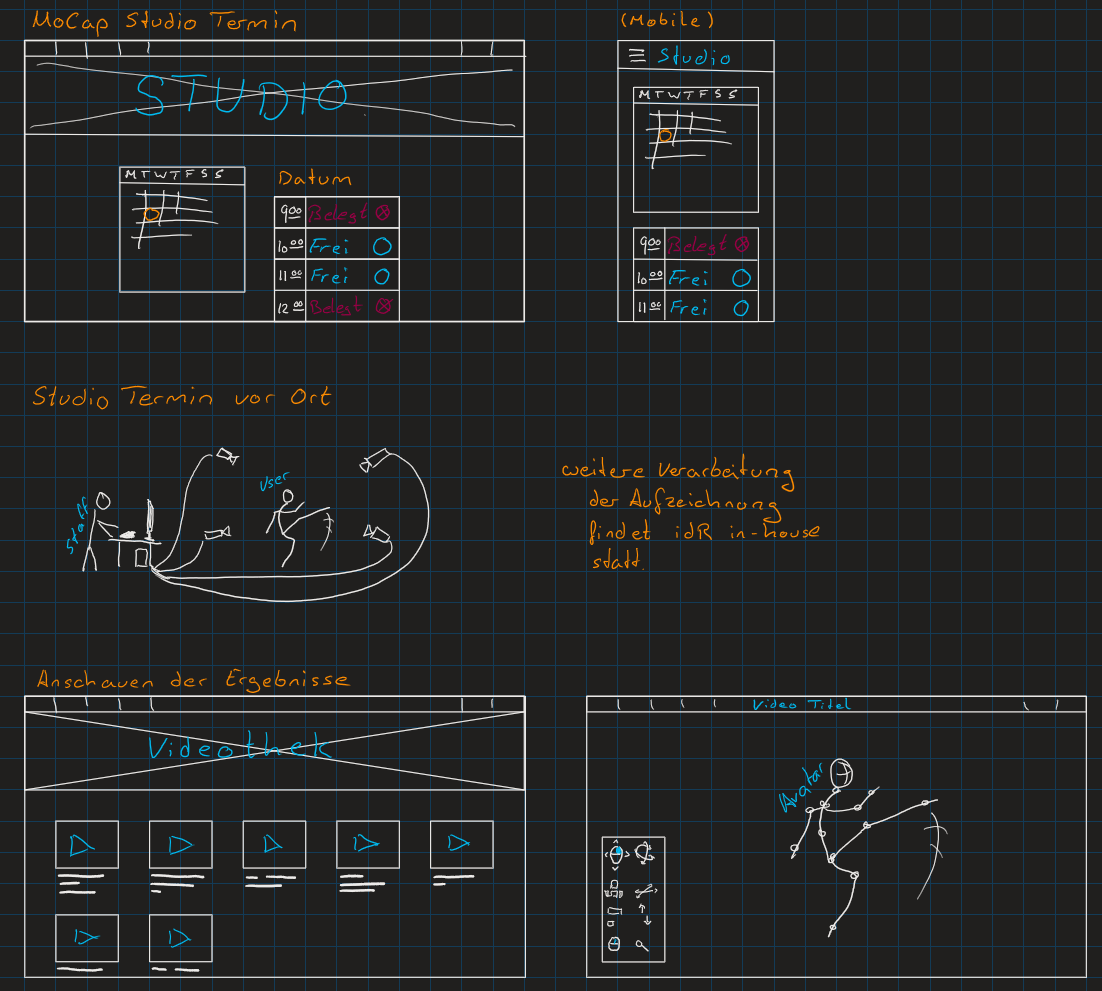 MoCap Studio Termin
(Mobile)
STUDIO
Studio
M T W T F S S
Datum
9⁰⁰ Belegt
10⁰⁰ Frei
11⁰⁰ Frei
12⁰⁰ Belegt
M T W T F S S
9⁰⁰ Belegt
10⁰⁰ Frei
11⁰⁰ Frei
Studio Termin vor Ort
Staff
User
weitere Verarbeitung
der Aufzeichnung
findet idR in-house
statt.
Anschauen der Ergebnisse
Videothek
Video Titel
Avatar